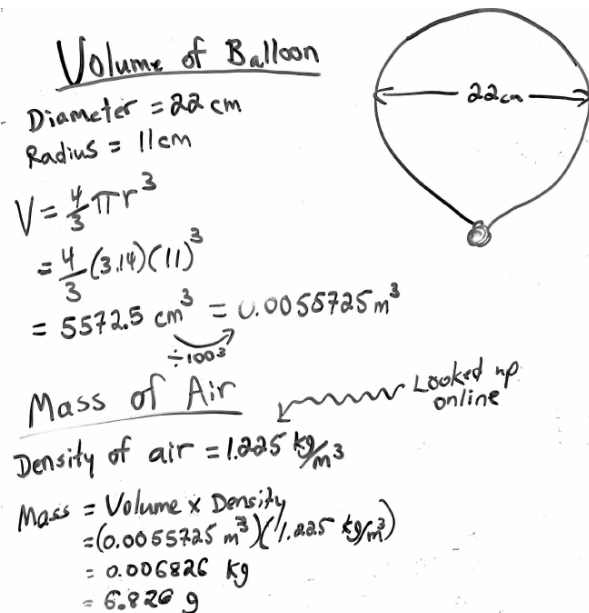 Volume of Balloon
Diameter = 22 cm
Radius = 11cm
22cm
V = 4/3 πr³
= 4/3 (3.14)(11)³
= 5572.5 cm³ = 0.0055725m³
÷100³
Mass of Air
Looked up
online
Density of air = 1.225 kg/m³
Mass = Volume x Density
=(0.0055725 m³)(1.225 kg/m³)
= 0.006826 kg
= 6.826 g